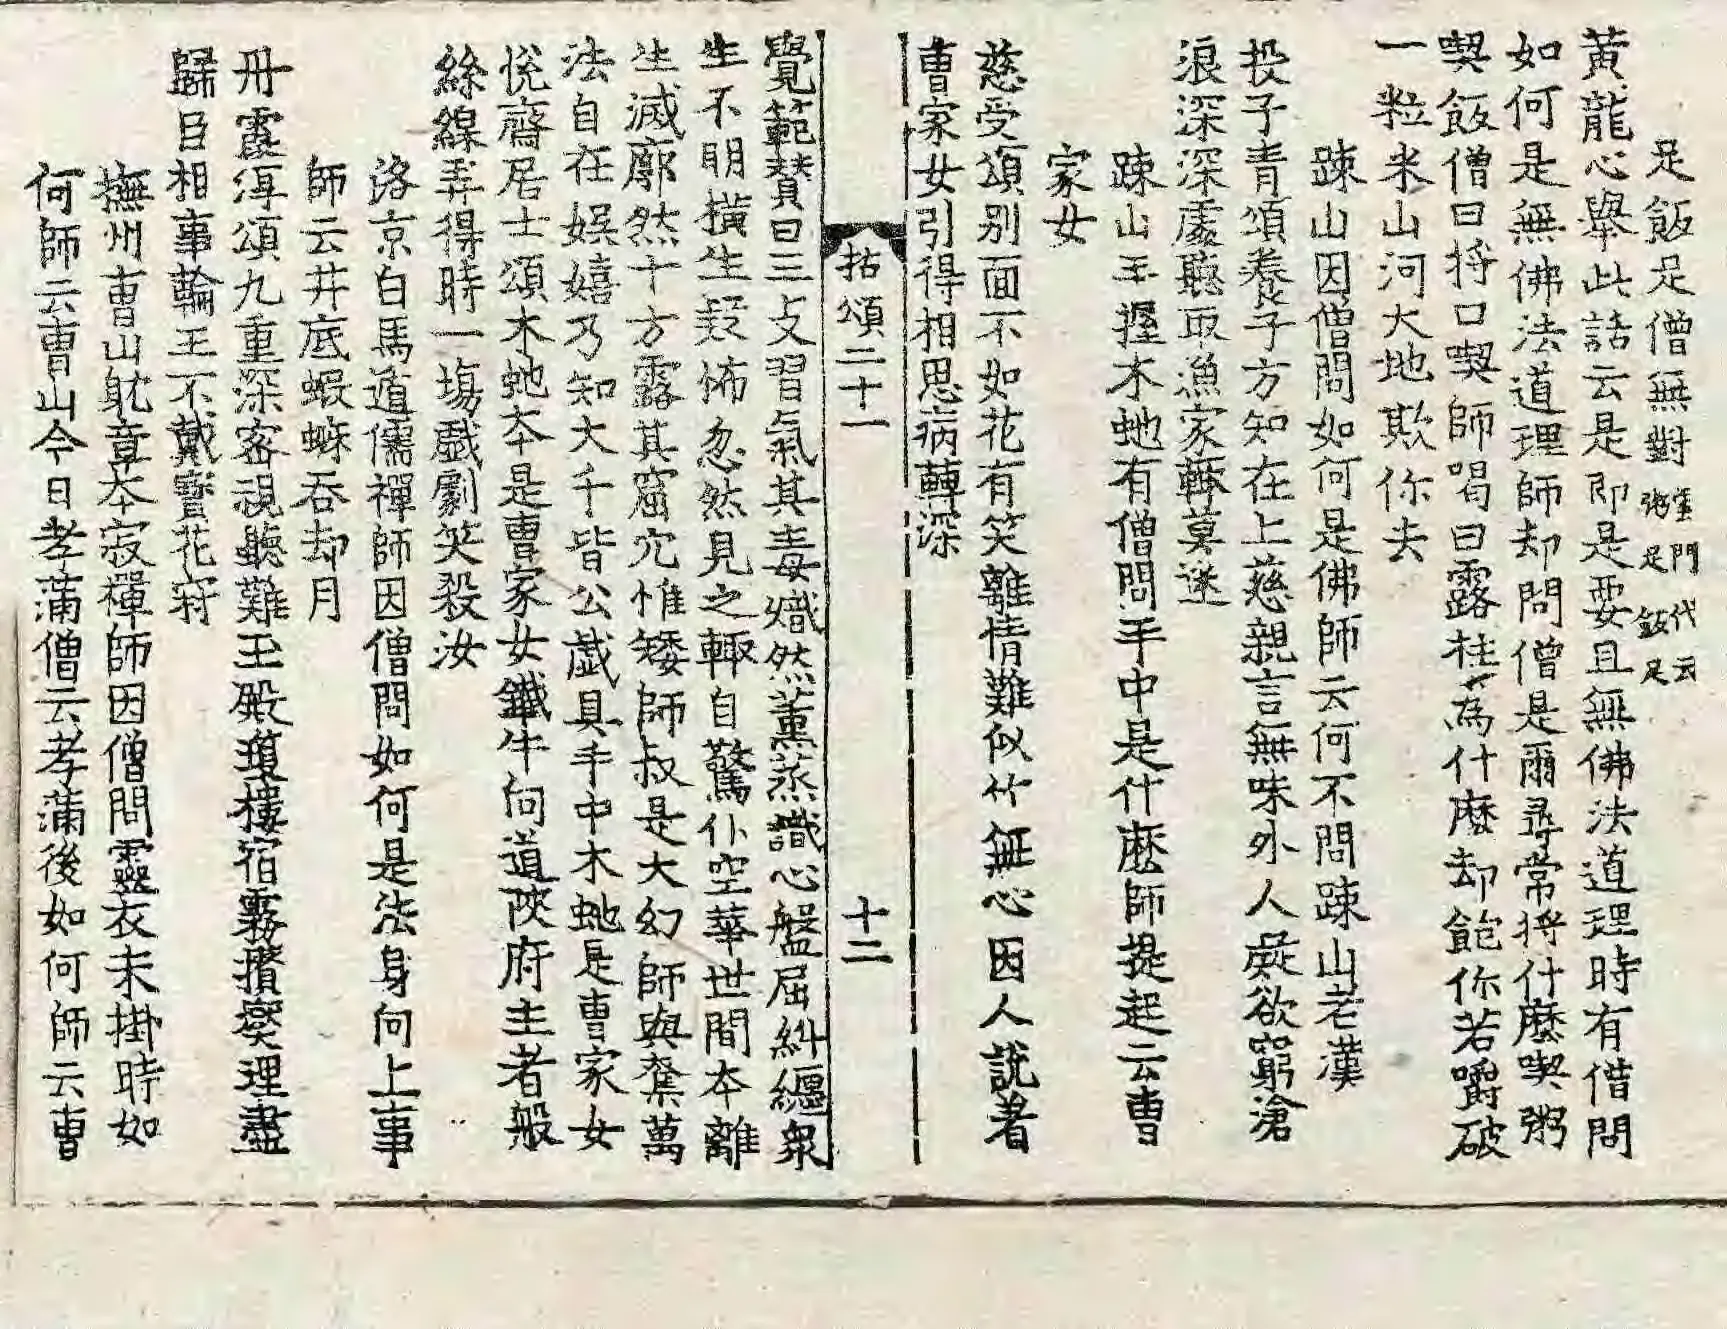 足飯足僧無對雲門代云粥足飯足
黃龍心舉此話云是即是要且無佛法道理時有僧問
如何是無佛法道理師却問僧是爾尋常將什麼喫粥
喫飯僧曰將口喫師喝曰露柱為什麼却飽你若嚼破
一粒米山河大地欺你去
踈山因僧問如何是佛師云何不問踈山老漢
投子青頌養子方知在上慈親言無味外人疑欲窮滄
浪深深處聽取漁家輙莫迷
踈山手握木虵有僧問手中是什麼師提起云曺
家女
慈受頌別面不如花有笑離情難似竹無心因人說著
曺家女引得相思病轉深
拈頌二十一 十二
覺範賛曰三攴習氣其毒熾然薰蒸識心盤屈糾纏衆
生不明橫生疑怖忽然見之輙自驚仆空華世間本離
生滅廓然十方露其窟穴惟矮師叔是大幻師與奪萬
法自在娛嬉乃知大千皆公戱具手中木虵是曺家女
悅齋居士頌木虵本是曺家女鐵牛向道陝府主者般
絲線弄得時一場戱劇笑殺汝
洛京白馬遁儒禪師因僧問如何是法身向上事
師云井底蝦蟆吞却月
丹霞淳頌九重深密視聽難玉殿瓊樓宿霧攅燮理盡
歸臣相事輪王不戴寶花冠
撫州曺山躭章本寂禪師因僧問靈衣未掛時如
何師云曺山今日孝蒲僧云孝蒲後如何師云曺